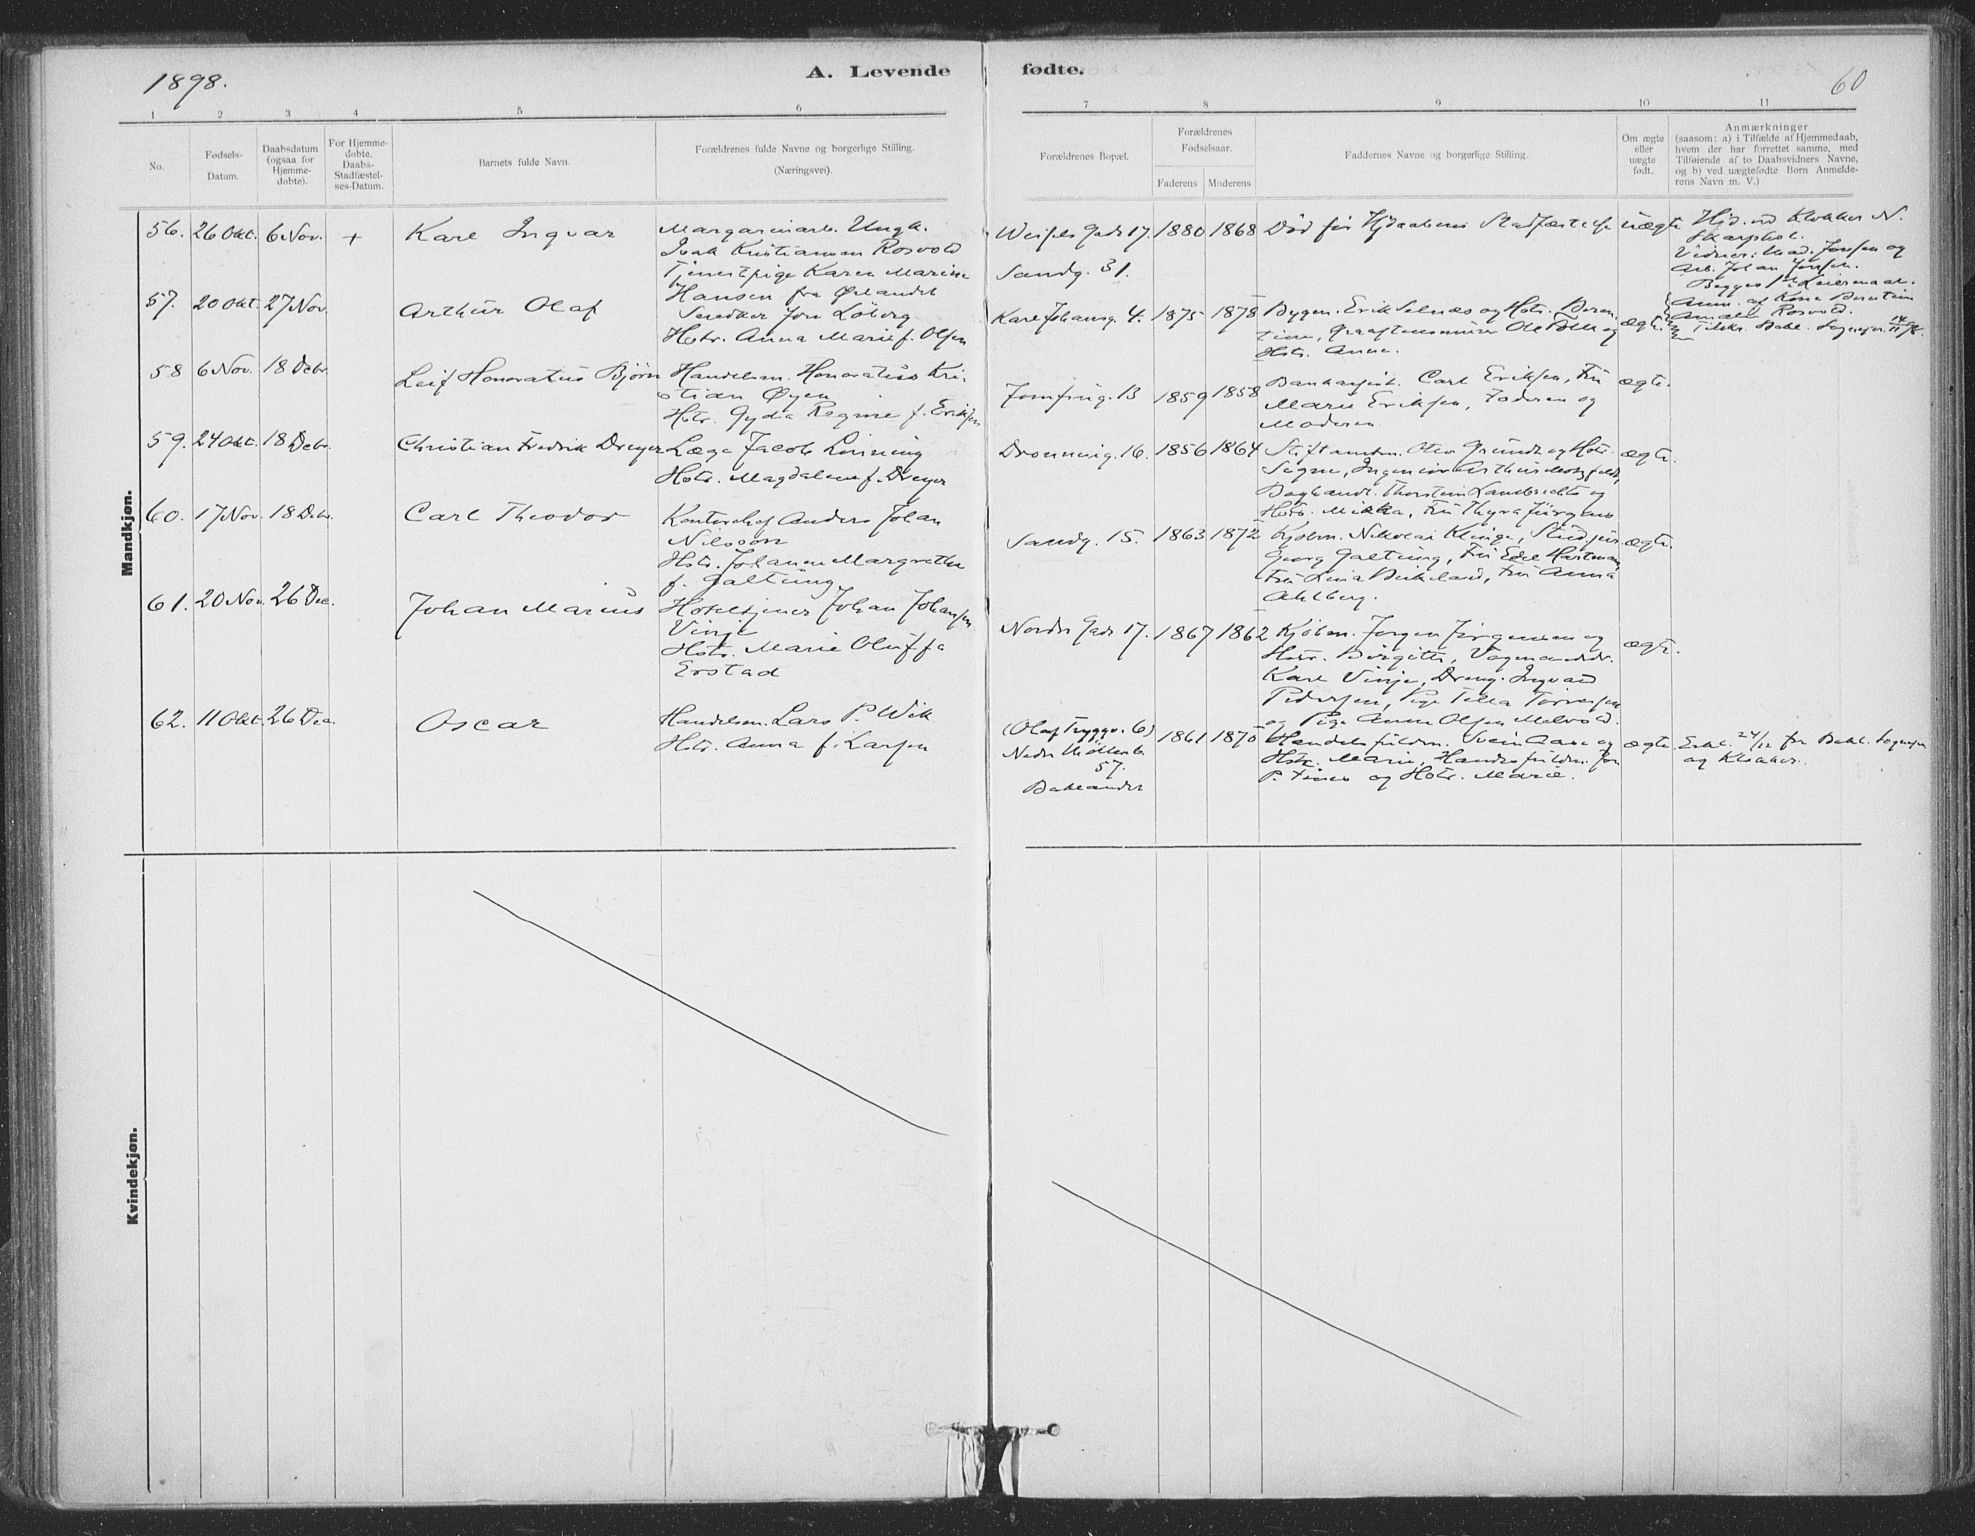 1898.
A. Levende fødte.
60
1 2 3 4 5 6 7 8 9 10 11
No.
Fødsels-Datum.
Daabsdatum (ogsaa for Hjemmedøbte).
For Hjemmedøbte, Daabs-Stadfæstelses-Datum.
Barnets fulde Navn.
Forældrenes fulde Navne og borgerlige Stilling.
(Næringsvei).
Forældrenes Bopæl.
Forældrenes Fødselsaar.
Faderens
Moderens
Faddernes Navne og borgerlige Stilling.
Om ægte eller uægte født.
Anmærkninger
(saasom: a) i Tilfælde af Hjemmedaab,
hvem der har forrettet samme, med
Tilføiende af to Daabsvidners Navne,
og b) ved uægtefødte Børn Anmelde-
rens Navn m. V.)
Mandkjøn.
56. 26 Okt. 6 Nov. + Karl Ingvar
Margarinarb. Ungk.
Isak Kristiansen Rosvold
Tjenestpige Karen Marine
Hansen fra Ørlandet
Weises Gade 17.
Sandg. 31.
1880 1868
Død før Hjdaabens Stadfæstelse
uægte
Hjd. ved Klokker N.
Skarpholt.
Vidner: Mad. Jensen og
Arb. Johan Jensen.
Begges 1ste Leiermaal.
Anm. af Kone Berntine
Amalie Rosvold.
57. 20 Okt. 27 Nov. Arthur Olaf
Snedker Jon Løberg
Hstr. Anna Marie f. Olsen
Karl Johansg. 4. 1875 1878
Bygm. Erik Selnæs og Hstr. Beren-
tine, Graastensmurer Ole Bolle og
Hstr. Anna.
ægte.
58 6 Nov. 18 Debr. Leif Honoratus Bjørn
Handelsm. Honoratius Kri-
stian Øyen
Hstr. Gyda Regine f. Eriksen
Jomfrug. 13 1859 1858
Bankassist. Carl Eriksen, Fru
Marie Eriksen, Faderen og
Moderen.
ægte.
59. 24 Okt. 18 Debr. Christian Fredrik Dreyer
Læge Jacob Linning
Hstr. Magdalene f. Dreyer
Dronning. 16. 1856 1864
Stiftamtm. Olev Grundt og Hstr.
Signe, Ingeniør Arthur Motzfeldt,
Boghandl. Thorstein Lambrechts og
Hstr. Mikka, Fru Thyra Jürgens
ægte.
60. 17 Nov. 18 Debr. Carl Theodor
Kontorchef Anders Johan
Nilsson
Hstr. Johanne Margrethe
f. Galtung
Sandg. 15. 1863 1872
Kjøbm. Nikolai Klinge, Stud. jur.
Georg Galtung, Fru Edle Hartman,
Fru Lina Birkeland, Fru Anna
Ahlberg.
ægte.
61. 20 Nov. 26 Dec. Johan Marius
Hoteltjener Johan Johansen
Vinje
Hstr. Marie Oluffa
Erstad
Nordre Gade 17. 1867 1862
Kjøbm. Jørgen Jørgensen og
Hstr. Birgitte, Vognmandsdr.
Karl Vinje, Dreng. Ingvald
Pedersen, Pige Tella Torversen
og Pige Anna Olsen Melvold.
ægte.
62. 11 Okt. 26 Dec. Oscar
Handelsm. Lars P. Wik
Hstr. Anna f. Larsen
(Olaf Tryggv. 6)
Nedre Møllenb.
57.
Baklandet
1861 1870
Handelsfuldm. Svein Aase og
Hstr. Marie, Handelsfuldm. Jon
P. Finnes og Hstr. Marie.
ægte.
Erkl. 24/12 fra Bakl. Sogneprs.
og Klokker.
Kvindekjøn.